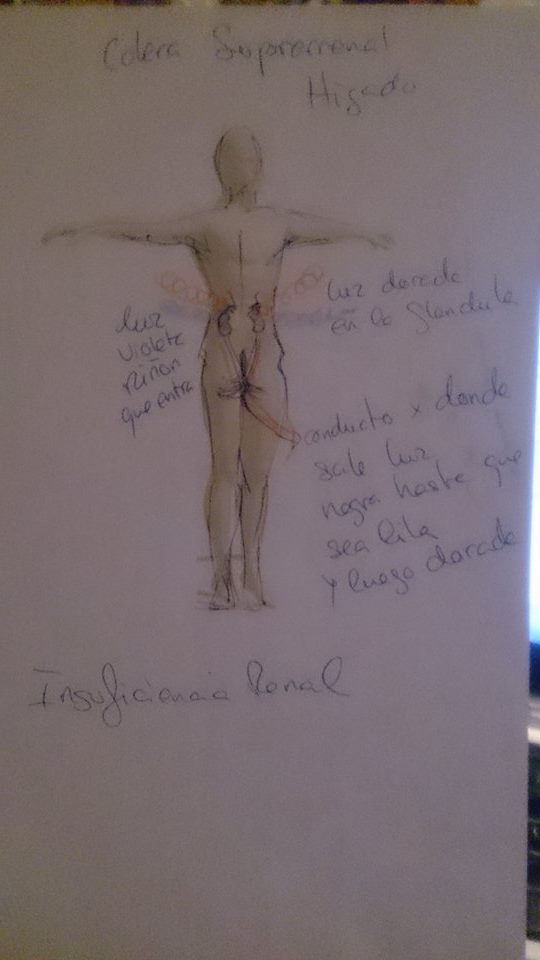 Colera Suprarrenal
Higado
luz
violeta
riñon
que entra
luz dorada
en la glandula
conducto x donde
sale luz
negra hasta que
sea lila
y luego dorada
Insuficiencia Renal